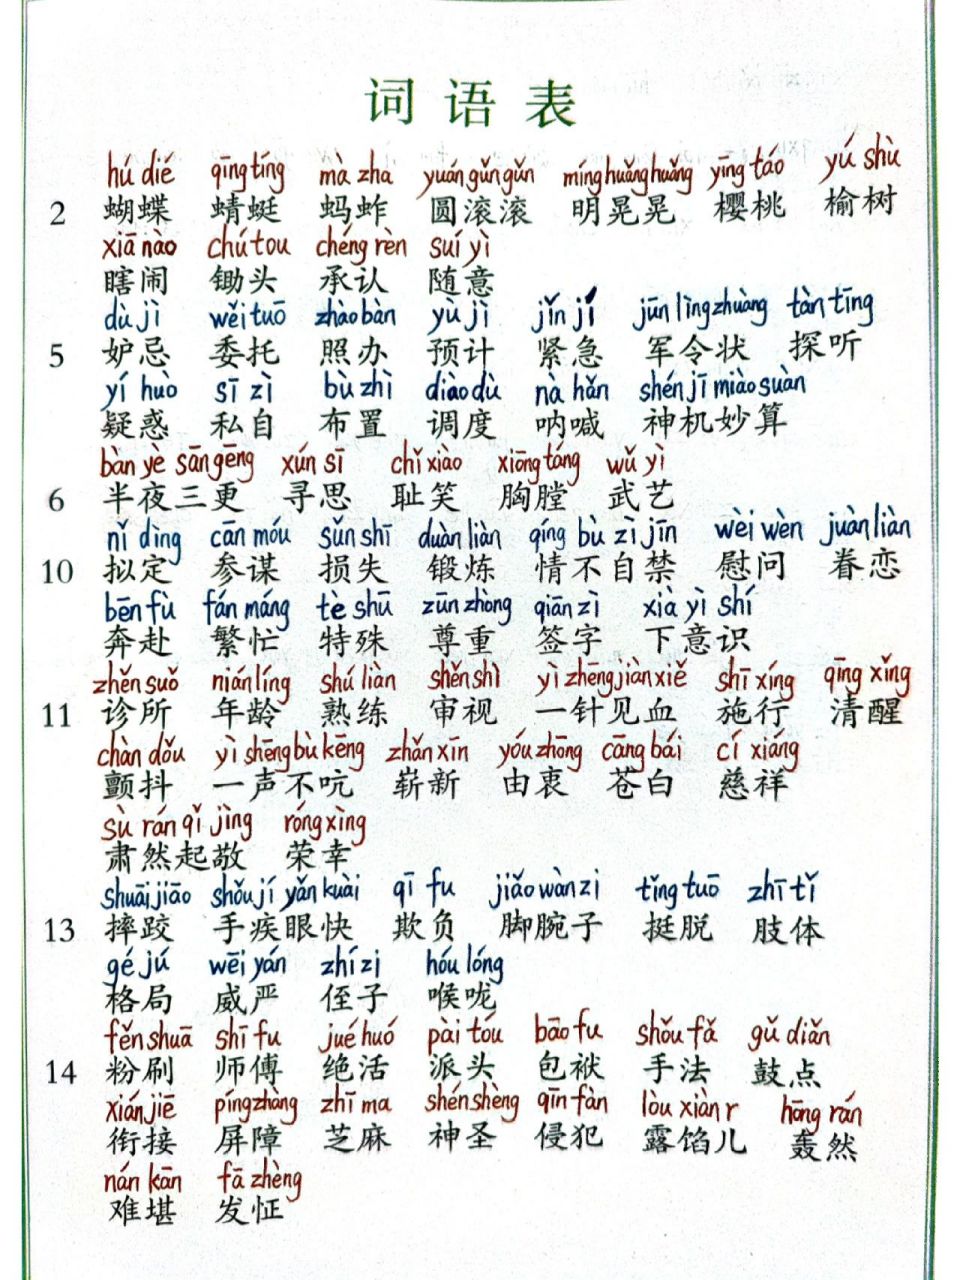 词语表
hú dié qīng tíng mà zha yuán gǔn gǔn míng huǎng huǎng yīng táo yú shù
2 蝴蝶 蜻蜓 蚂蚱 圆滚滚 明晃晃 樱桃 榆树
xiā nào chú tou chéng rèn suí yì
瞎闹 锄头 承认 随意
dù jì wěi tuō zhào bàn yù jì jǐn jí jūn lìng zhuàng tàn tīng
5 妒忌 委托 照办 预计 紧急 军令状 探听
yí huò sī zì bù zhì diào dù nà hǎn shén jī miào suàn
疑惑 私自 布置 调度 呐喊 神机妙算
bàn yè sān gēng xún sī chǐ xiào xiōng táng wǔ yì
6 半夜三更 寻思 耻笑 胸膛 武艺
nǐ dìng cān móu sǔn shī duàn liàn qíng bù zì jīn wèi wèn juàn liàn
10 拟定 参谋 损失 锻炼 情不自禁 慰问 眷恋
bēn fù fán máng tè shū zūn zhòng qiān zì xià yì shí
奔赴 繁忙 特殊 尊重 签字 下意识
zhěn suǒ nián líng shú liàn shěn shì yì zhēng jiàn xiě shī xíng qīng xǐng
11 诊所 年龄 熟练 审视 一针见血 施行 清醒
chàn dǒu yì shēng bù kēng zhǎn xīn yóu zhōng cāng bái cí xiáng
颤抖 一声不吭 崭新 由衷 苍白 慈祥
sù rán qǐ jìng róng xìng
肃然起敬 荣幸
shuāi jiāo shǒu jí yǎn kuài qī fu jiǎo wàn zi tǐng tuō zhī tǐ
13 摔跤 手疾眼快 欺负 脚腕子 挺脱 肢体
gé jú wēi yán zhí zi hóu lóng
格局 威严 侄子 喉咙
fěn shuā shī fu jué huó pài tóu bāo fu shǒu fǎ gǔ diǎn
14 粉刷 师傅 绝活 派头 包袱 手法 鼓点
xián jiē píng zhàng zhī ma shén shèng qīn fàn lòu xiàn r hōng rán
衔接 屏障 芝麻 神圣 侵犯 露馅儿 轰然
nán kān fā zhèng
难堪 发怔